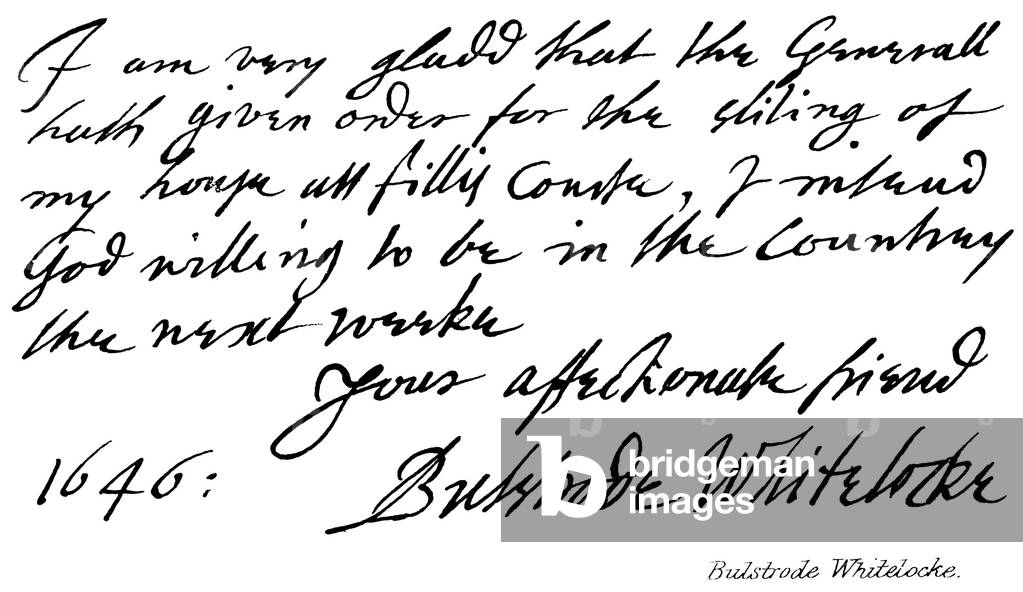 I am very gladd that the Generall
hath given order for the sliting of
my house att fillis Courte, I intend
God willing to be in the Countrey
the next weeke
Your affectionate friend
1646: Bulstrode Whitelocke
bridgeman
images
Bulstrode Whitelocke.